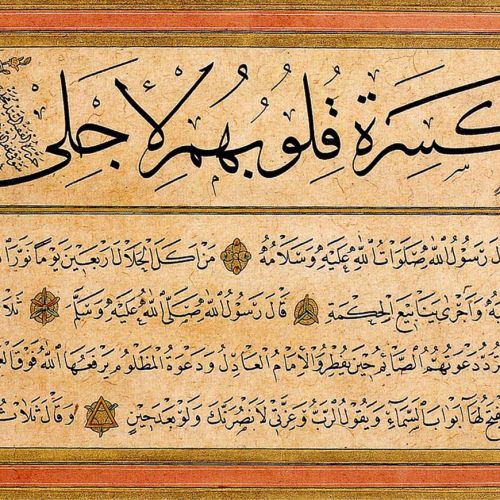 كسرة قلوبهم لأجلي
رسول الله صلوات الله عليه وسلامه من اكل الحلال اربعين يوما نور
واجرى ينابيع الحكمة قال رسول الله صلى الله عليه وسلم
دعوتهم الصائم حين يفطر والامام العادل ودعوة المظلوم يرفعها الله فوق
لها ابواب السماء ويقول الرب وعزتي لانصرنك ولو بعد حين وقال ثلاث